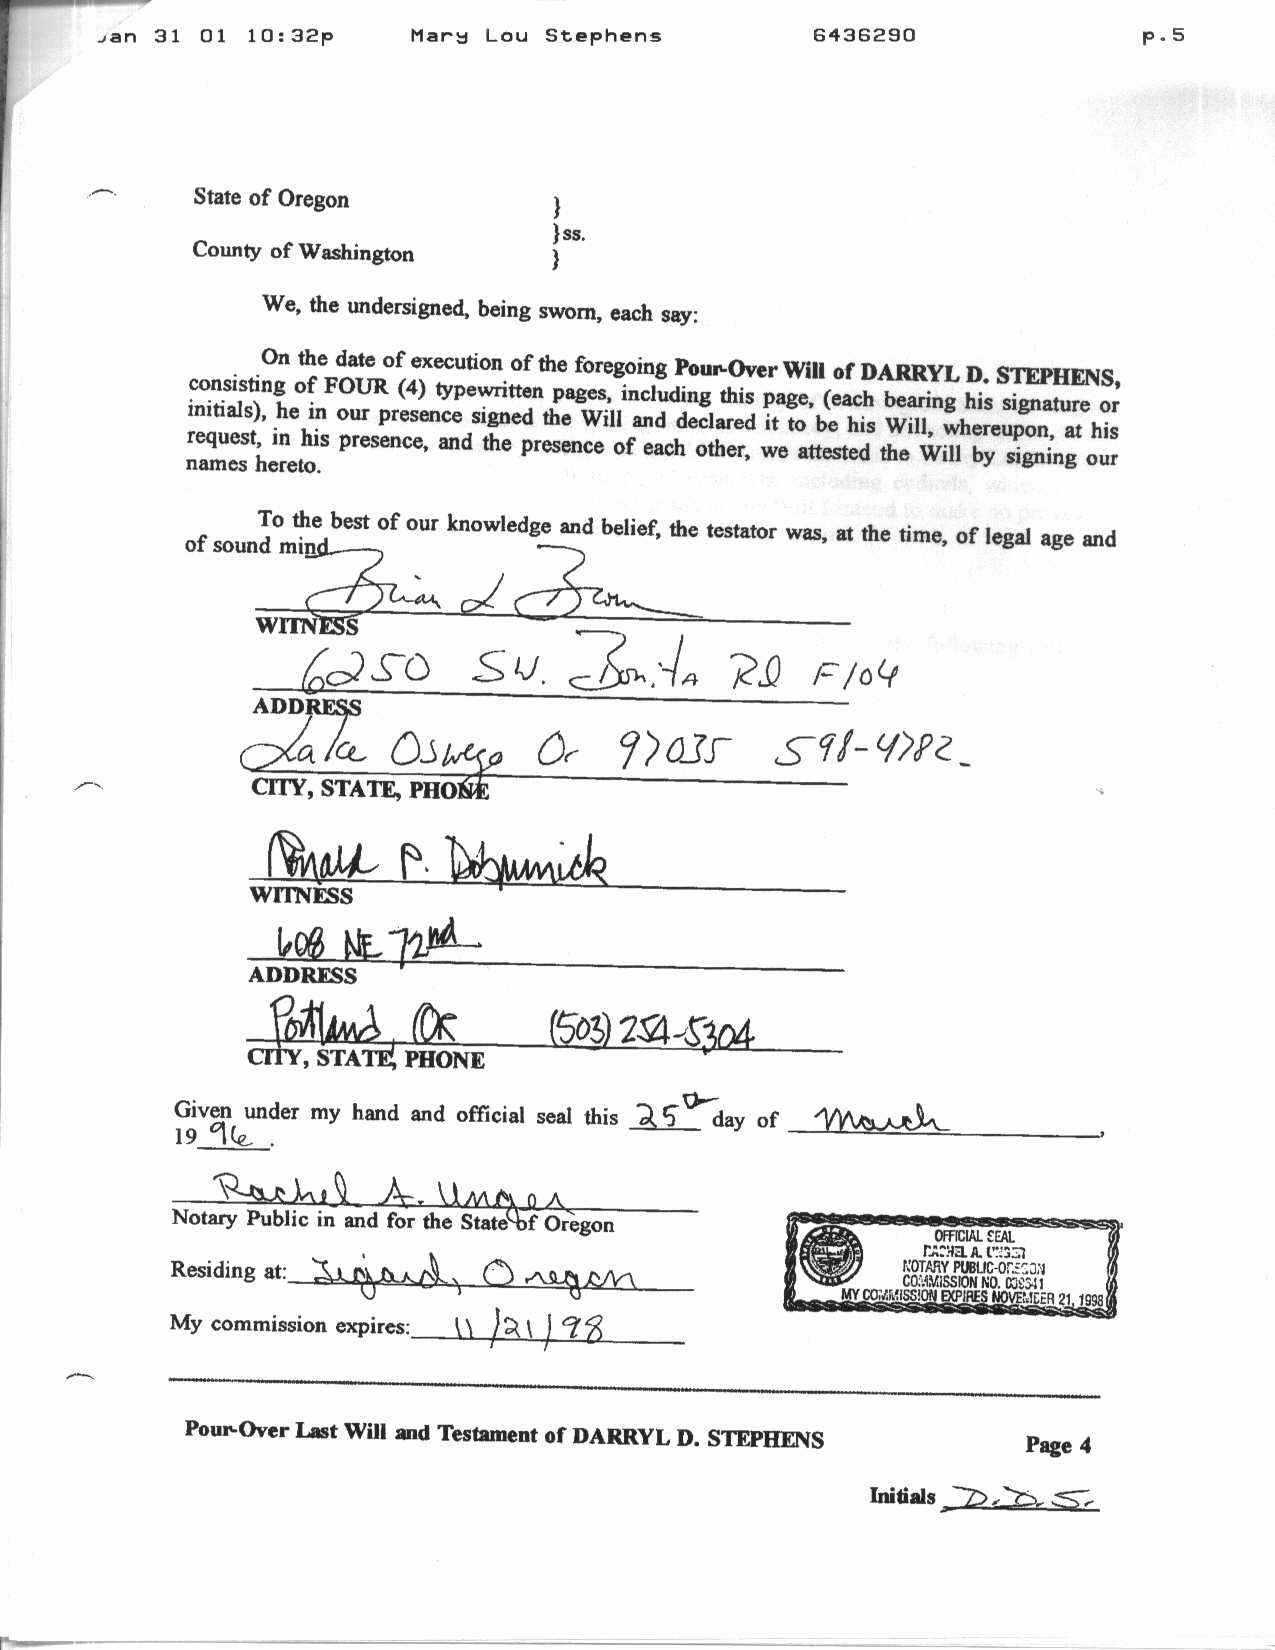 Jan 31 01 10:32p Mary Lou Stephens 6436290 p.5
State of Oregon }
}ss.
County of Washington }
We, the undersigned, being sworn, each say:
On the date of execution of the foregoing Pour-Over Will of DARRYL D. STEPHENS,
consisting of FOUR (4) typewritten pages, including this page, (each bearing his signature or
initials), he in our presence signed the Will and declared it to be his Will, whereupon, at his
request, in his presence, and the presence of each other, we attested the Will by signing our
names hereto.
To the best of our knowledge and belief, the testator was, at the time, of legal age and
of sound mind.
Brian L Brown
WITNESS
6250 SW. Bonita Rd F104
ADDRESS
Lake Oswego Or 97035 598-4782
CITY, STATE, PHONE
Ronald P.
WITNESS
608 NE 72nd
ADDRESS
Portland, OR (503) 254-5304
CITY, STATE, PHONE
Given under my hand and official seal this 25th day of March,
1996.
Rachel A. Unger
Notary Public in and for the State of Oregon
OFFICIAL SEAL
RACHEL A. UNGER
NOTARY PUBLIC-OREGON
COMMISSION NO.
MY COMMISSION EXPIRES NOVEMBER 21, 1998
Residing at: Tigard, Oregon
My commission expires: 11/21/98
Pour-Over Last Will and Testament of DARRYL D. STEPHENS Page 4
Initials D.D.S.